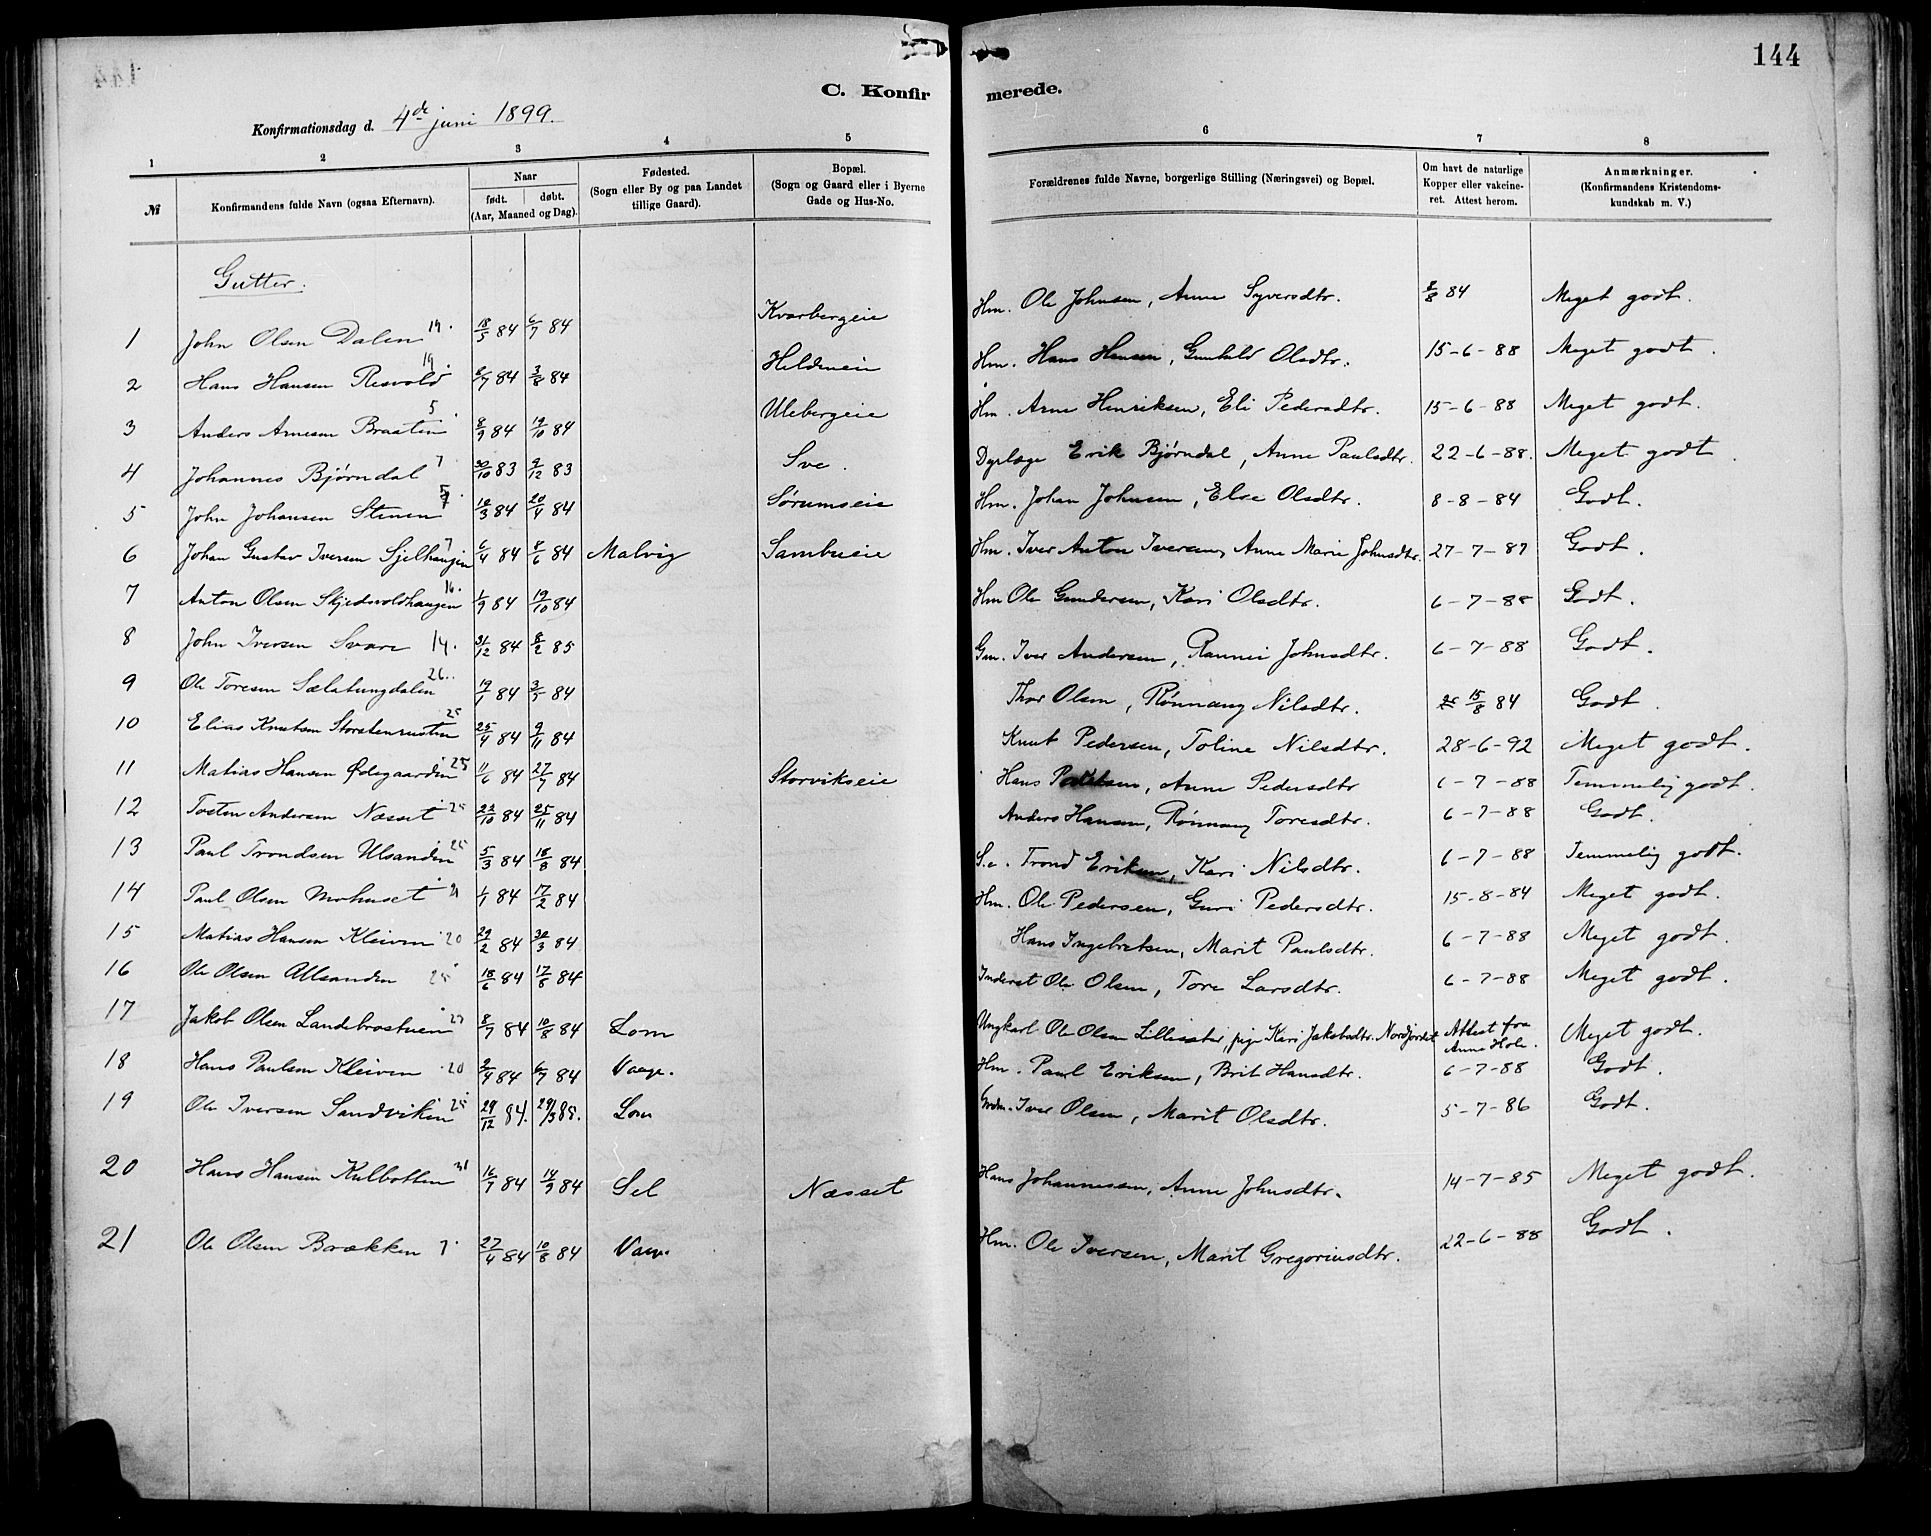 144
C. Konfirmerede.
Konfirmationsdag d. 4de juni 1899.
1 2 3 4 5 6 7 8
№ Konfirmandens fulde Navn (ogsaa Efternavn). Naar født. døbt. (Aar, Maaned og Dag). Fødested. (Sogn eller By og paa Landet tillige Gaard). Bopæl. (Sogn og Gaard eller i Byerne Gade og Hus-No. Forældrenes fulde Navne, borgerlige Stilling (Næringsvei) og Bopæl. Om havt de naturlige Kopper eller vakcineret. Attest herom. Anmærkninger. (Konfirmandens Kristendomskundskab m. V.)
Gutter.
1 John Olsen Dalen 19. 18/5 84 6/7 84 Kvarbergeie Hm. Ole Johnsen, Anne Syversdtr. 8/8 84 Meget godt.
2 Hans Hansen Resvold 19. 84 3/8 84 Hm. Hans Hansen, Gunhild Olsdtr. 15-6-88 Meget godt.
3 Anders Arnesen Braaten 5. 8/9 84 19/10 84 Ulebergeie Hm. Arne Henriksen, Eli Pedersdtr. 15-6-88 Meget godt.
4 Johannes Bjørndal 7 30/10 83 9/12 83 Sve. Dyrlæge Erik Bjørndal, Anne Paulsdtr. 22-6-88. Meget godt.
5 John Johansen Stenen 19/3 84 20/4 84 Sørumseie Hm. Johan Johnsen, Else Olsdtr. 8-8-84 Godt.
6 Johan Gustav Iversen Sjelhaugen 7 6/4 84 8/6 84 Malvig Sambueie Hm. Iver Anton Iversen, Anne Marie Johnsdtr. 27-7-87 Godt.
7 Anton Olsen Skjedsvoldhaugen 16. 1/9 84 19/10 84 Hm Ole Gundersen, Kari Olsdtr. 6-7-88 Godt.
8 John Iversen Svare 14. 31/12 84 8/2 85 Gm. Iver Andersen, Rannei Johnsdtr. 6-7-88 Godt.
9 Ole Toresen Sælatungdalen 26. 19/1 84 3/5 84 Thor Olsen, Rønnaug Nilsdtr. 15/8 84 Godt.
10 Elias Knutsen Storstenrusten 25 25/4 84 9/11 84 Knut Pedersen, Toline Nilsdtr. 28-6-92 Meget godt.
11 Matias Hansen Ødegaarden 25 11/6 84 27/7 84 Storvikseie Hans Anne Pedersdtr 6-7-88 Temmelig godt.
12 Tosten Andersen Næsset 25 22/10 84 25/11 84 Anders Hansen, Rønnaug Toresdtr. 6-7-88 Godt.
13 Paul Trondsen Ulsanden 25 5/3 84 18/3 84 S.e. Trond Eriksen, Kari Nilsdtr. 6-7-88 Temmelig godt.
14 Paul Olsen Mohuset 21 1/1 84 17/2 84 Hm. Ole Pedersen, Guri Pedersdtr. 15-8-84 Meget godt.
15 Matias Hansen Kleiven 20 29/2 84 30/3 84 Hans Ingebretsen, Marit Paulsdtr. 6-7-88 Meget godt.
16 Ole Olsen Ulsanden 25 18/6 84 17/8 84 Inderst Ole Olsen, Tore Larsdtr. 6-7-88 Meget godt.
17 Jakob Olsen Landebrostuen 27 8/7 84 10/8 84 Lom Ungkarl Ole Olsen Lillesæter, pige Kari Jakobsdtr. Nordjordet Attest fra Anne Hole. Meget godt.
18 Hans Paulsen Kleiven 20 2/4 84 6/7 84 Vaage. Hm. Paul Eriksen, Brit Hansdtr. 6-7-88 Godt.
19 Ole Iversen Sandviken 25 29/12 84. 29/3 85. Lom Grdm. Iver Olsen, Marit Olsdtr. 5-7-86 Godt.
20 Hans Hansen Kulbotten 31 16/7 84 14/9 84 Sel Næsset Hans Johannessen, Anne Johnsdtr. 14-7-85 Meget godt.
21 Ole Olsen Brækken 7. 27/4 84 10/8 84 Vaage Hm. Ole Iversen, Marit Gregoriusdtr. 22-6-88 Godt.